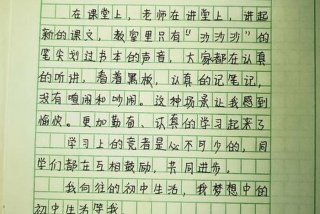 在课堂上，老师在讲堂上，讲起
新的课文，教室里只有“沙沙沙”的
笔尖划过书本的声音，大家都在认真
的听讲，看着黑板，认真的记笔记，
没有喧闹和吵闹。这种场景让我感到
愉快。更加勤奋、认真的学习起来了
学习上的竞者是必不可少的，同
学们都在互相鼓励，共同进步。
我向往的初中生活，我梦想中的
初中生活等我